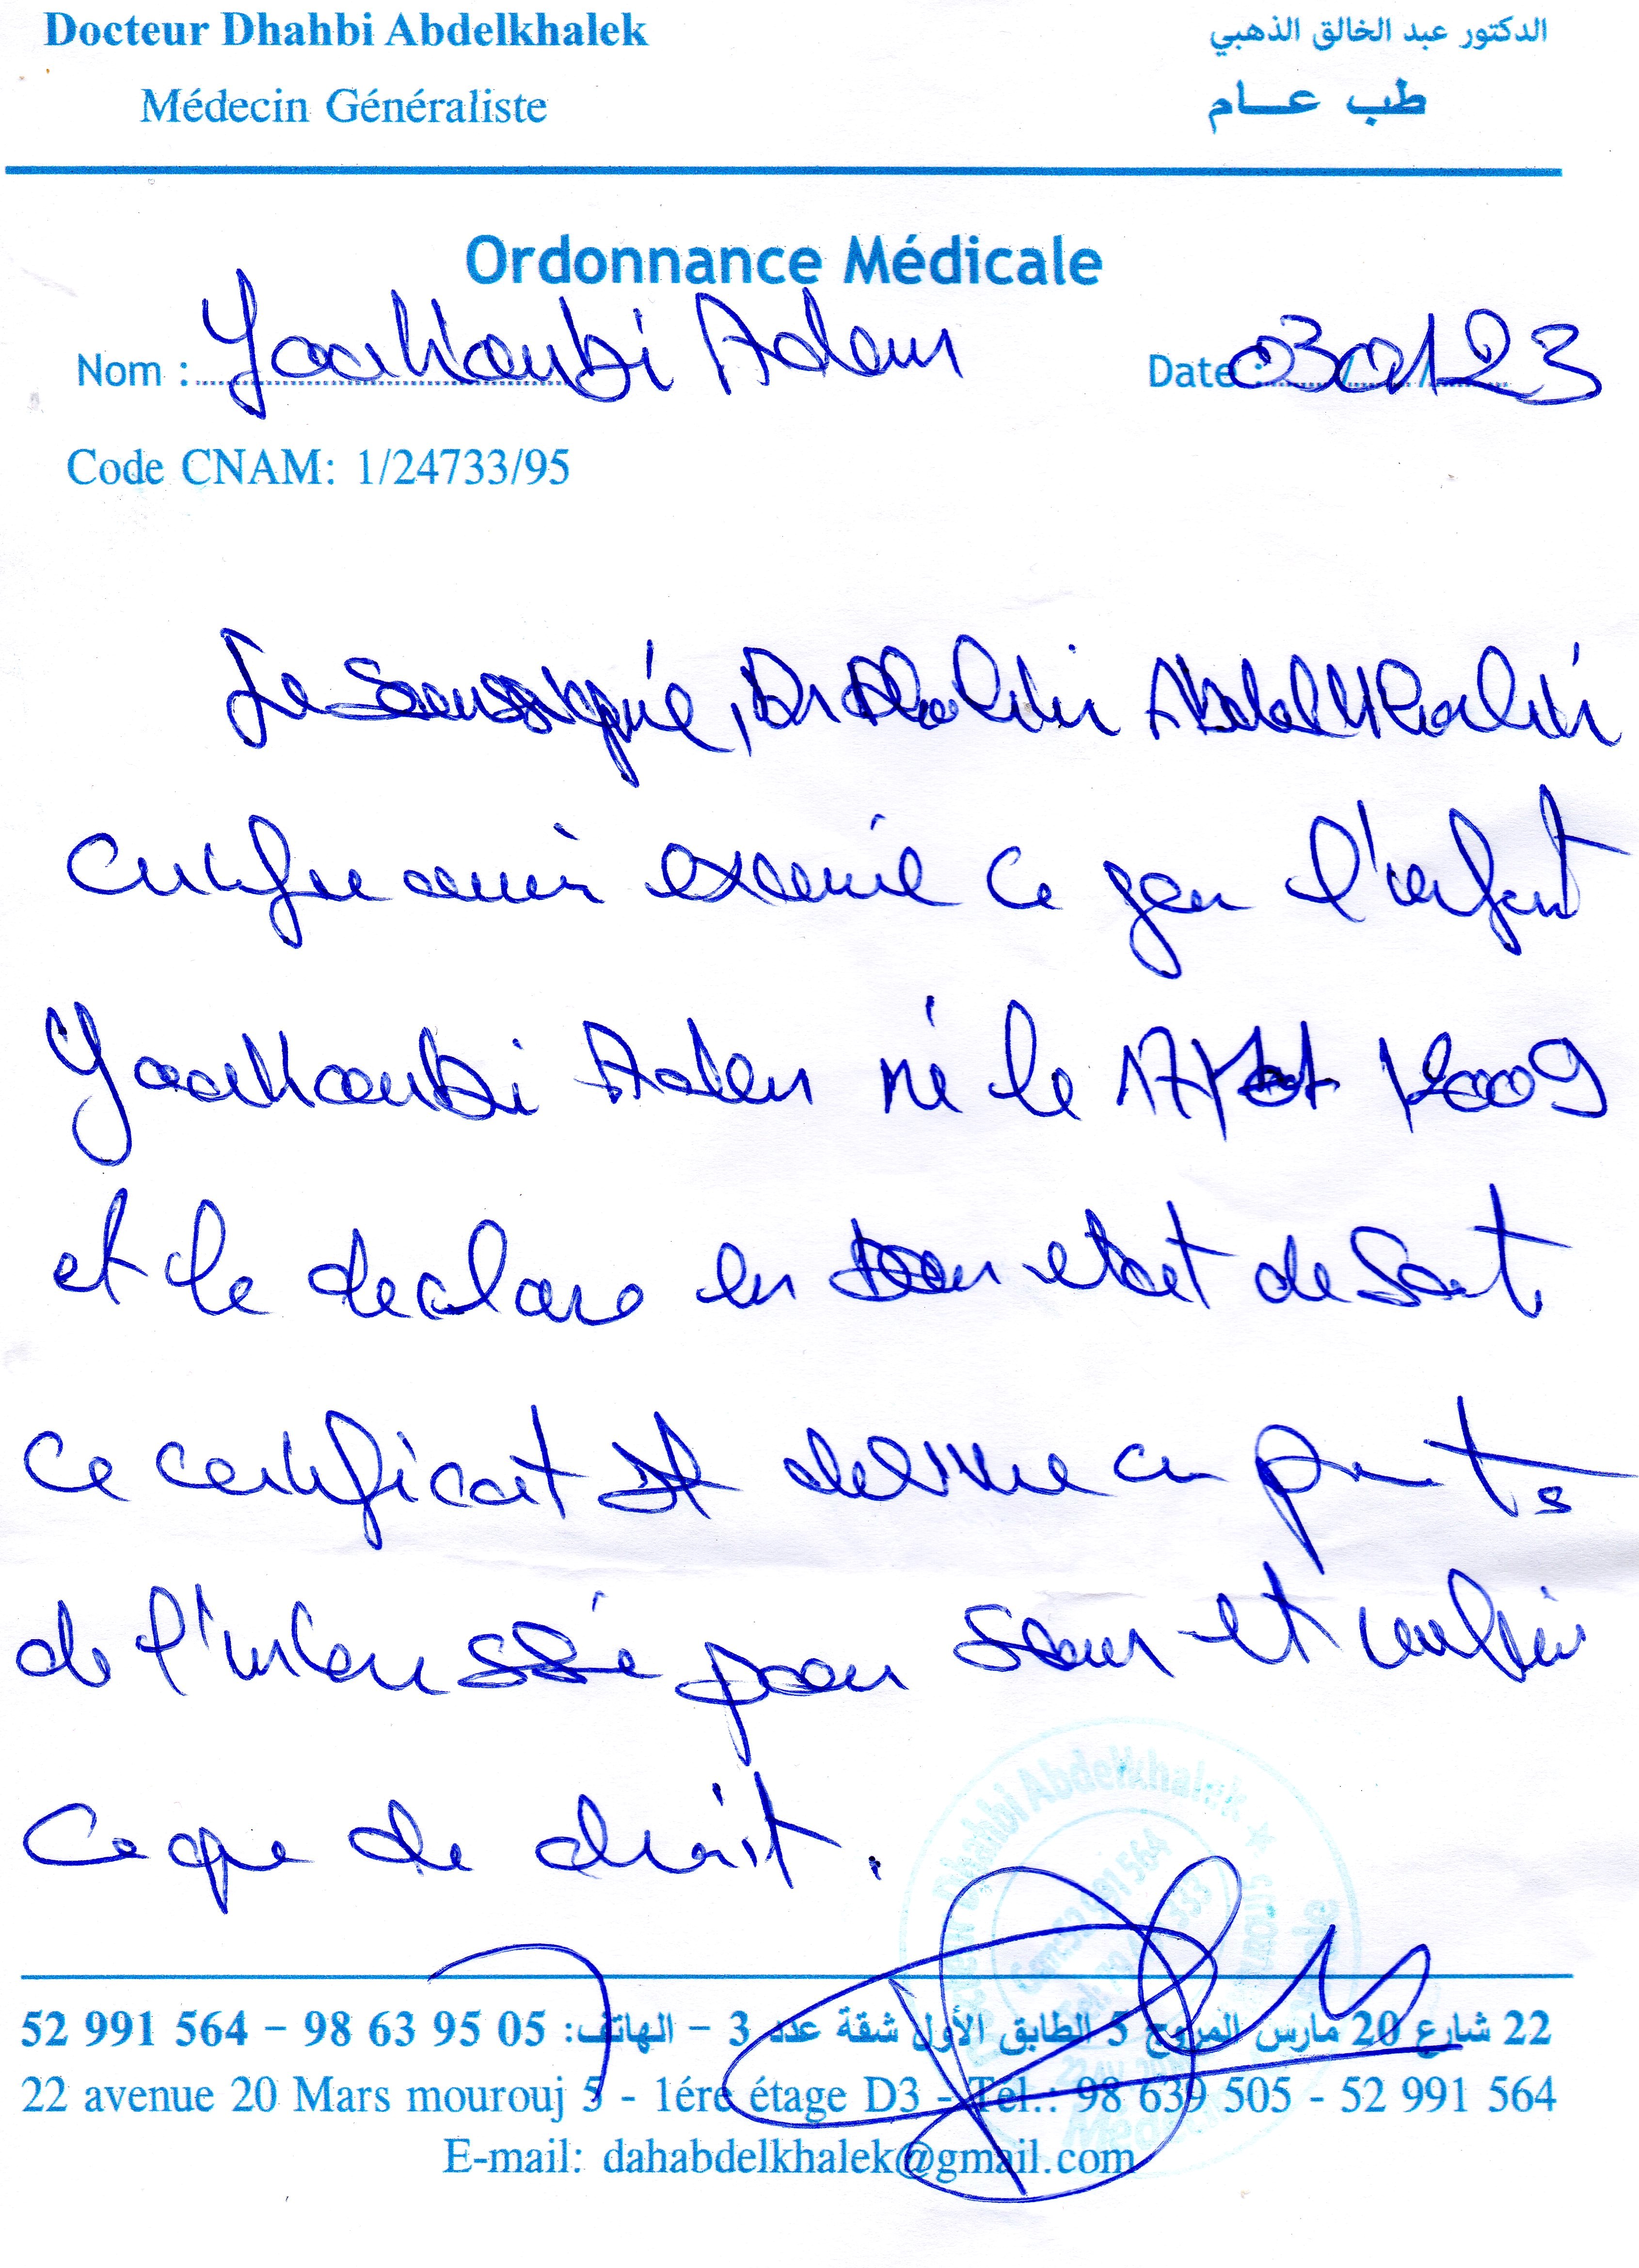 Docteur Dhahbi Abdelkhalek
الدكتور عبد الخالق الذهبي
Médecin Généraliste
طب عــام
Ordonnance Médicale
Nom : Yaakoubi Adem
Date : 03 01 23
Code CNAM: 1/24733/95
Je soussigné, Dr Dhahbi Abdelkhalek
certifie avoir examiné ce jour l'enfant
Yaakoubi Adem né le 17 / / 2009
et le declare en bon etat de santé
ce certificat est delivré en
de l'interessé pour servir et valoir
ce que de droit.
Docteur Dhahbi Abdelkhalek
22 شارع 20 مارس المروج 5 الطابق الأول شقة عدد 3 – الهاتف: 05 95 63 98 – 564 991 52
22 avenue 20 Mars mourouj 5 - 1ére étage D3 - Tél.: 98 639 505 - 52 991 564
E-mail: dahabdelkhalek@gmail.com